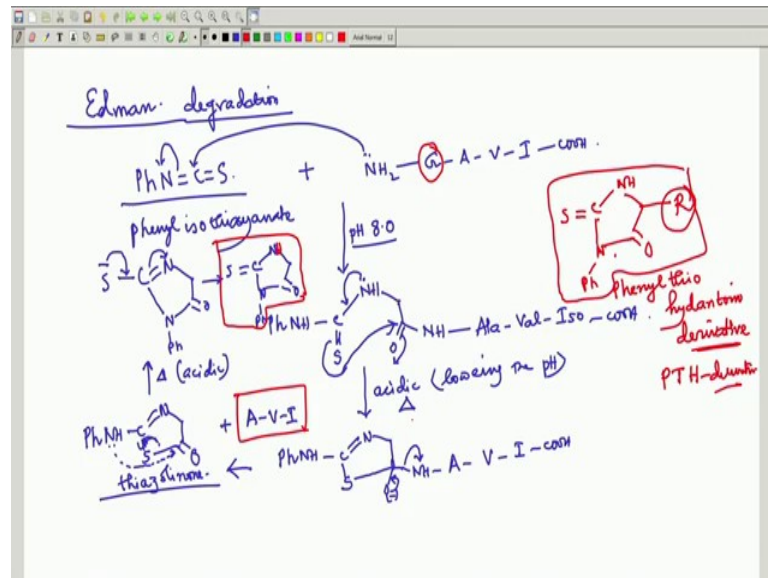 Edman degradation
PhN=C=S. + NH2—G—A—V—I—COOH.
phenyl isothiocyanate
pH 8.0
S=C NH R
N O
Ph
Phenylthio
hydantoin
derivative
PTH-
S—C N
N O
Ph
S=C N O
Ph
PhNH—C NH
S O
NH—Ala—Val—Iso—COOH.
Δ (acidic)
acidic (lowering the pH)
Δ
PhNH—C N
S O
+ A-V-I
thiazolinone.
PhNH—C N
S O
(-)
NH—A—V—I—COOH